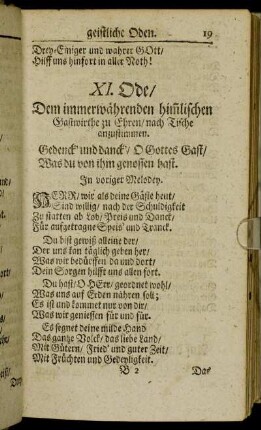 geistliche Oden. 19
Drey-Einiger und wahrer GOtt/
Hilff uns hinfort in aller Noth!
XI. Ode/
Dem immerwährenden himlischen
Gastwirthe zu Ehren/ nach Tische
anzustimmen.
Gedenck' und danck'/ O Gottes Gast/
Was du von ihm genossen hast.
In voriger Melodey.
HERR/ wir als deine Gäste heut/
Sind willig/ nach der Schuldigkeit
Zu statten ab Lob/ Preis und Danck/
Für aufgetragne Speis' und Tranck.
Du bist gewiß alleine der/
Der uns kan täglich geben her/
Was wir bedürffen da und dort/
Dein Sorgen hilfft uns allen fort.
Du hast/ O HErr/ geordnet wohl/
Was uns auf Erden nähren sol;
Es ist und kommet nur von dir/
Was wir geniessen für und für.
Es segnet deine milde Hand
Das gantze Volck/ das liebe Land/
Mit Gütern/ Fried' und guter Zeit/
Mit Früchten und Gedeyligkeit.
B 2 Das